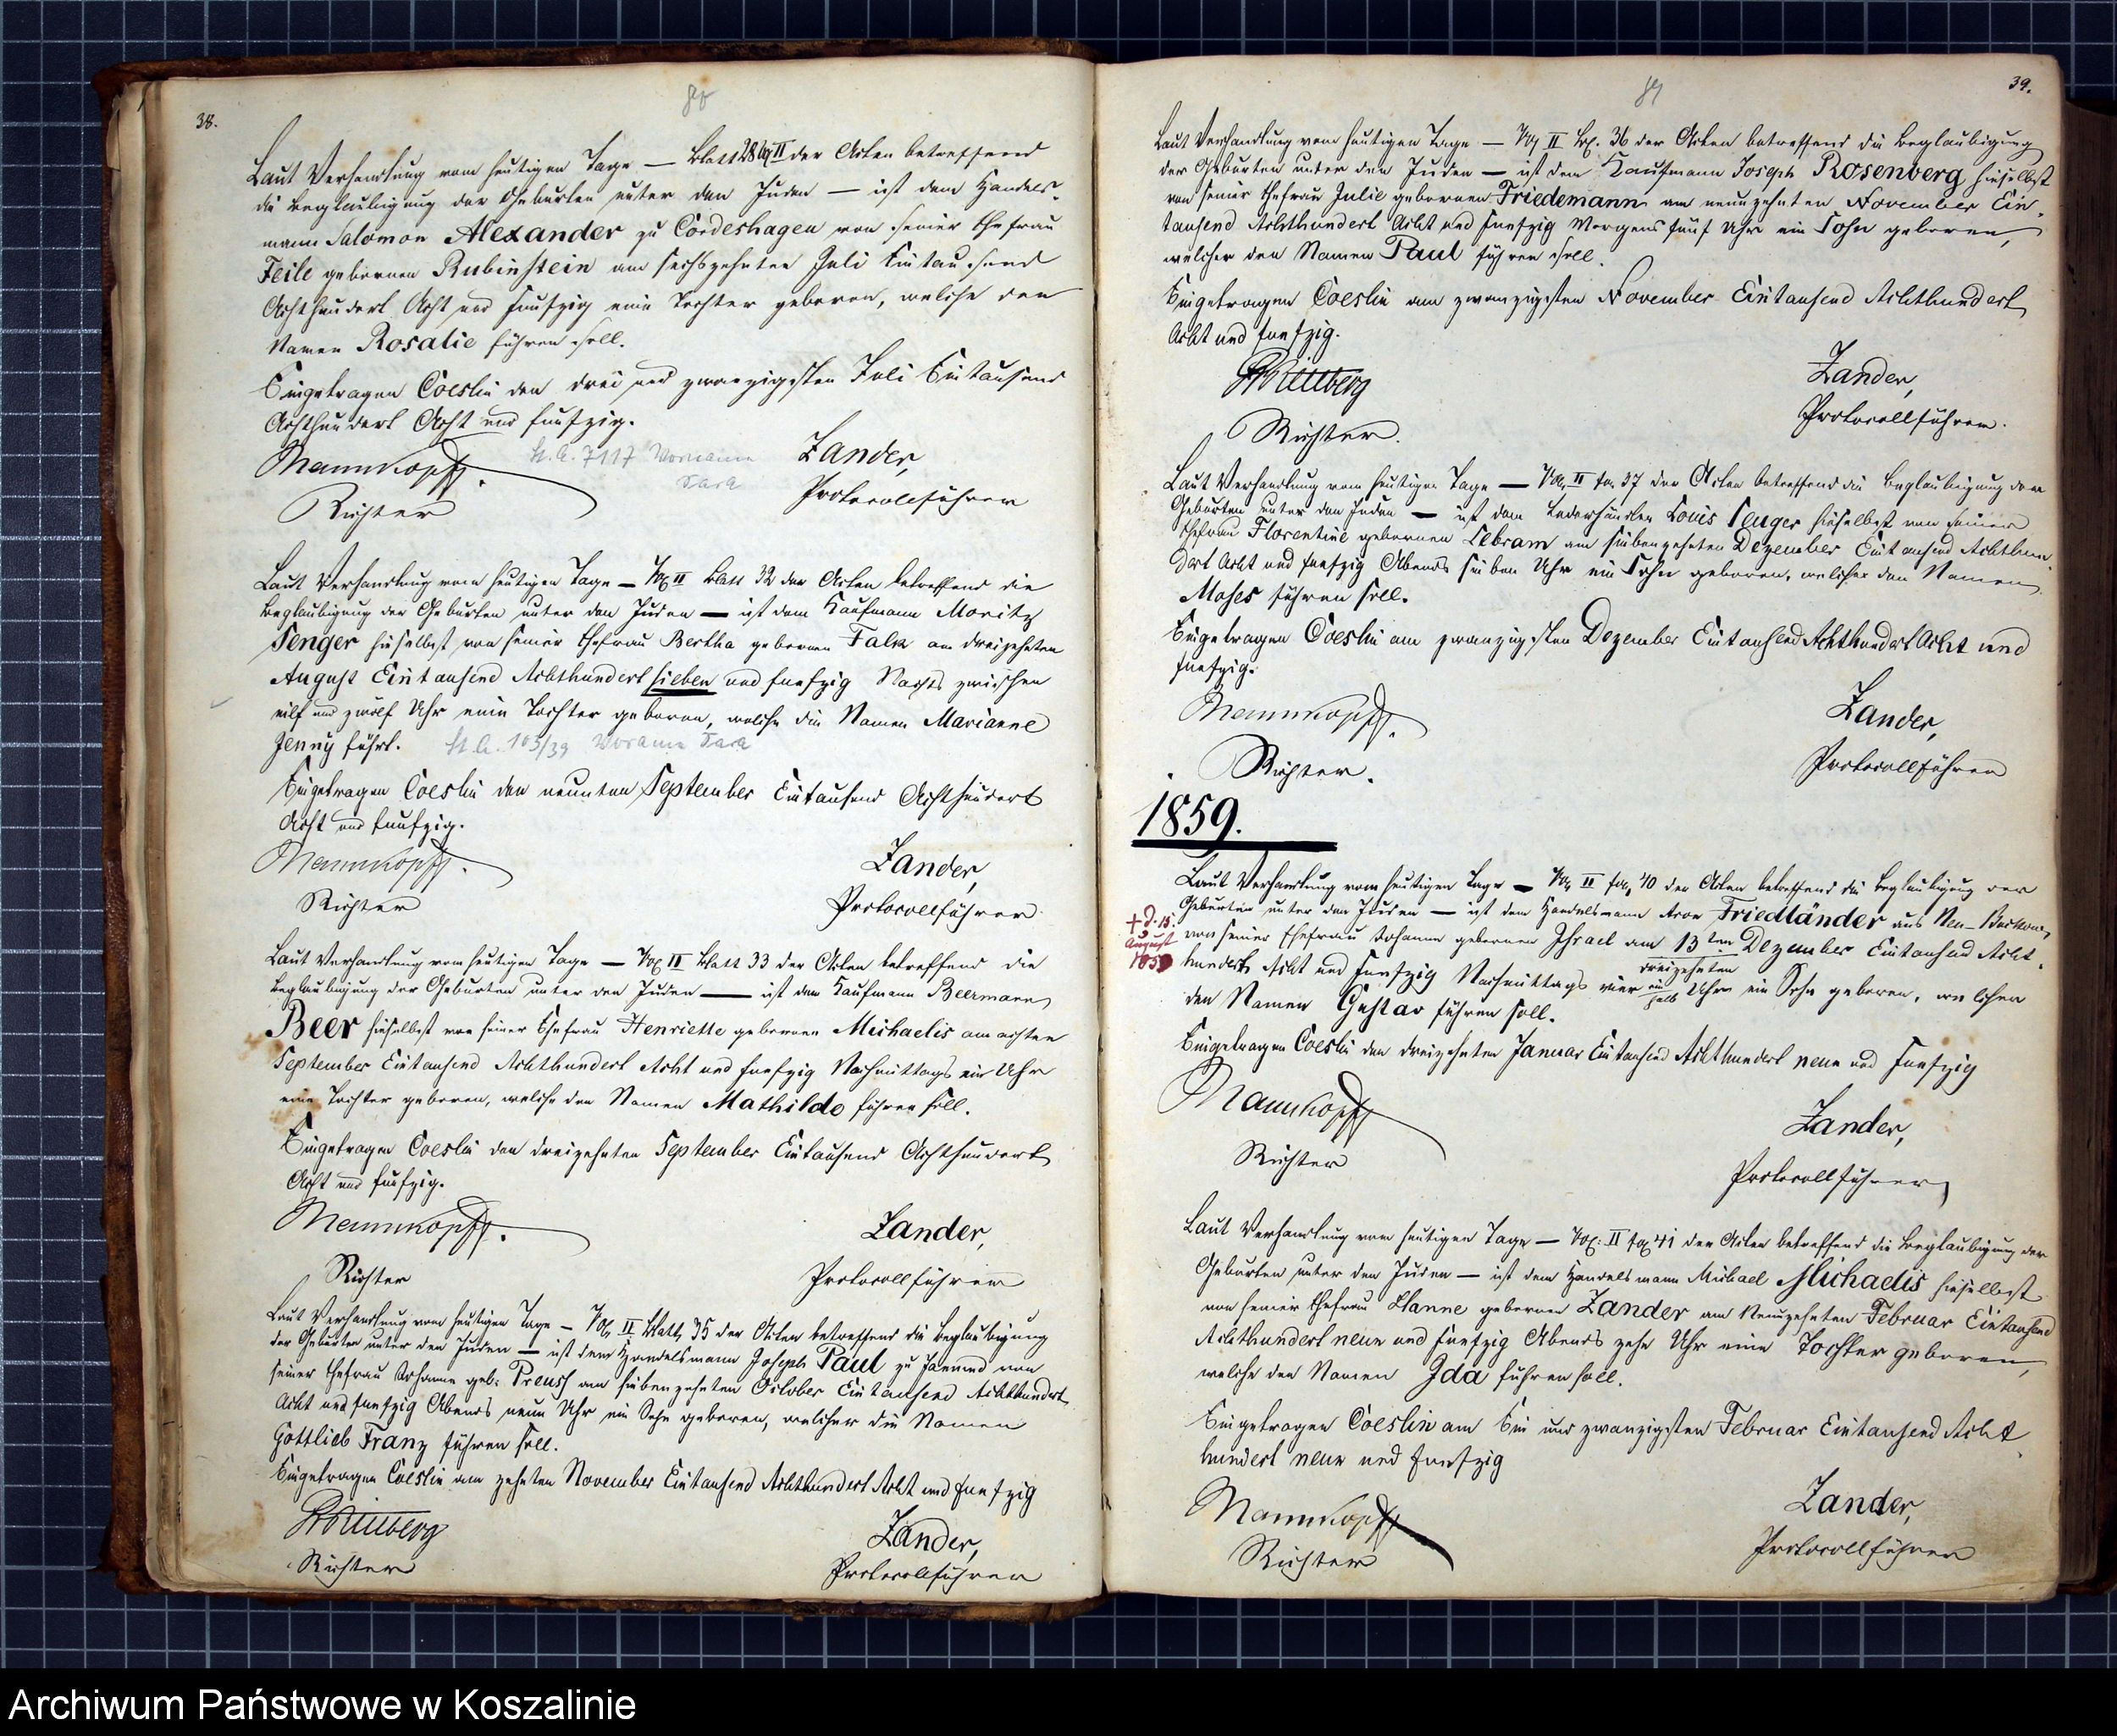 38.
Laut Verhandlung vom heutigen Tage — Blatt 28 Vol II der Akten betreffend
die Beglaubigung der Geburten unter den Juden — ist dem Handels-
mann Salomon Alexander zu Cordeshagen von seiner Ehefrau
Zeile gebornen Rubinstein am sechszehnten Juli Eintausend
Achthundert Acht und funfzig eine Tochter geboren, welche den
Namen Rosalie führen soll.
Eingetragen Coeslin den drei und zwanzigsten Juli Eintausend
Achthundert Acht und funfzig.
Mannkopff. Zander,
Richter Protocollführer
Vorname
Sara
Laut Verhandlung vom heutigen Tage — Vol II Blatt 32 der Akten betreffend die
Beglaubigung der Geburten unter den Juden — ist dem Kaufmann Moritz
Senger hieselbst von seiner Ehefrau Bertha gebornen Falk am dreizehnten
August Eintausend Achthundert sieben und funfzig Nachts zwischen
eilf und zwölf Uhr eine Tochter geboren, welche die Namen Marianne
Jenny führt. St. A. 103/39 Vorname Sara
Eingetragen Coeslin den neunten September Eintausend Achthundert
Acht und funfzig.
Mannkopff. Zander,
Richter Protocollführer
Laut Verhandlung vom heutigen Tage — Vol II Blatt 33 der Akten betreffend die
Beglaubigung der Geburten unter den Juden — ist dem Kaufmann Beermann
Beer hieselbst von seiner Ehefrau Henriette gebornen Michaelis am achten
September Eintausend Achthundert Acht und funfzig Nachmittags ein Uhr
eine Tochter geboren, welche den Namen Mathilde führen soll.
Eingetragen Coeslin den dreizehnten September Eintausend Achthundert
Acht und funfzig.
Mannkopff. Zander,
Richter Protocollführer
Laut Verhandlung vom heutigen Tage — Vol. II Blatt 35 der Akten betreffend die Beglaubigung
der Geburten unter den Juden — ist dem Handelsmann Joseph Paul zu Jamund von
seiner Ehefrau Johanne geb: Preuss am siebenzehnten October Eintausend Achthundert
Acht und funfzig Abends neun Uhr ein Sohn geboren, welcher die Namen
Gottlieb Franz führen soll.
Eingetragen Coeslin am zehnten November Eintausend Achthundert Acht und funfzig
Zander,
Richter Protocollführer
39.
Laut Verhandlung vom heutigen Tage — Vol II Bl. 36 der Akten betreffend die Beglaubigung
der Geburten unter den Juden — ist dem Kaufmann Joseph Rosenberg hieselbst
von seiner Ehefrau Julie gebornen Friedemann am neunzehnten November Ein-
tausend Achthundert Acht und funfzig Morgens fünf Uhr ein Sohn geboren,
welcher den Namen Paul führen soll.
Eingetragen Coeslin am zwanzigsten November Eintausend Achthundert
Acht und funfzig.
Zander,
Richter. Protocollführer.
Laut Verhandlung vom heutigen Tage — Vol. II fol. 37 der Akten betreffend die Beglaubigung der
Geburten unter den Juden — ist dem Lederhändler Louis Senger hieselbst von seiner
Ehefrau Florentine gebornen Lebram am siebenzehnten Dezember Eintausend Achthun-
dert Acht und funfzig Abends sieben Uhr ein Sohn geboren, welcher den Namen
Moses führen soll.
Eingetragen Coeslin am zwanzigsten Dezember Eintausend Achthundert Acht und
funfzig.
Mannkopff. Zander,
Richter. Protocollführer
1859.
Laut Verhandlung vom heutigen Tage — Vol II fol. 40 der Akten betreffend die Beglaubigung der
Geburten unter den Juden — ist dem Handelsmann Aron Friedländer aus Neu-
von seiner Ehefrau Johanne gebornen Israel am 13ten Dezember Eintausend Acht-
dreizehnten
† d. 15.
August
1859
hundert Acht und funfzig Nachmittags vier ein halb Uhr ein Sohn geboren, welcher
den Namen Gustav führen soll.
Eingetragen Coeslin den dreizehnten Januar Eintausend Achthundert neun und funfzig
Mannkopff Zander,
Richter Protocollführer
Laut Verhandlung vom heutigen Tage — Vol: II fol 41 der Akten betreffend die Beglaubigung der
Geburten unter den Juden — ist dem Handelsmann Michael Michaelis hieselbst
von seiner Ehefrau Hanne gebornen Zander am Neunzehnten Februar Eintausend
Achthundert neun und funfzig Abends zehn Uhr eine Tochter geboren,
welche den Namen Ida führen soll.
Eingetragen Coeslin am Ein und zwanzigsten Februar Eintausend Acht-
hundert neun und funfzig
Mannkopff Zander,
Richter Protocollführer
Archiwum Państwowe w Koszalinie